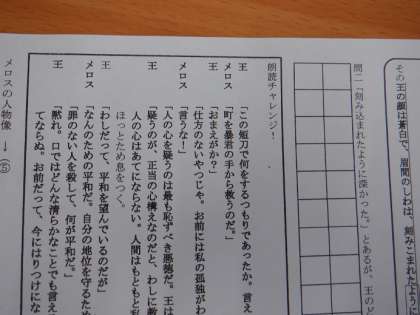 その王の顔は蒼白で、眉間のしわは、刻みこまれたように
問二「刻み込まれたように深かった。」とあるが、王のど
朗読チャレンジ！
王　「この短刀で何をするつもりであったか。言え
メロス「町を暴君の手から救うのだ。」
王　「おまえがか？」
「仕方のないやつじゃ。お前には私の孤独がわ
メロス「言うな！」
「人の心を疑うのは最も恥ずべき悪徳だ。王は
王　「疑うのが、正当の心構えなのだと、わしに教
人の心はあてにならない。人間はもともと私
ほっとため息をつく。
「わしだって、平和を望んでいるのだが」
メロス「なんのための平和だ。自分の地位を守るため
「罪のない人を殺して、何が平和だ。」
王　「黙れ。口ではどんな清らかなことも言え
てならぬ。お前だって、今にはりつけにな
メロスの人物像　→　⑤